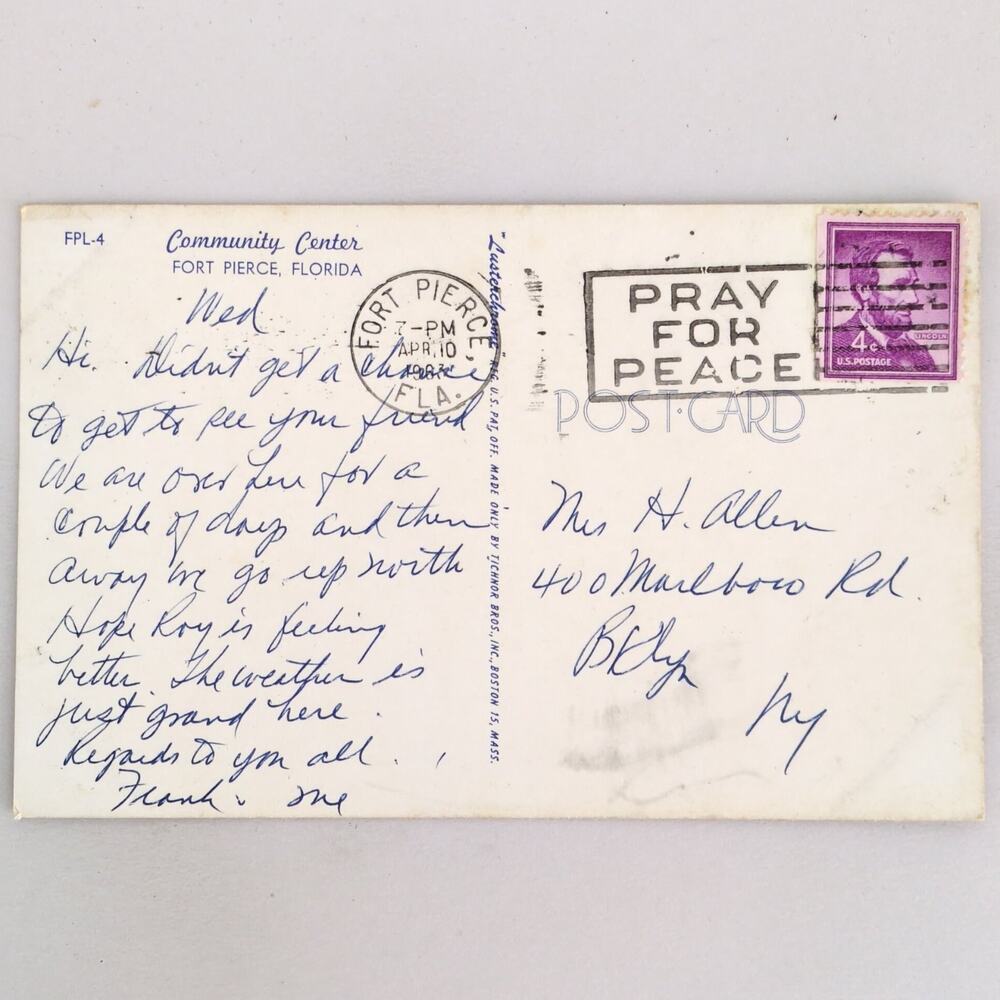 FPL-4
Community Center
FORT PIERCE, FLORIDA
Wed
Hi. Didn't get a chance
to get to see your friend
We are over here for a
couple of days and then
away we go up north
Hope Roy is feeling
better. The weather is
just grand here.
Regards to you all.
Frank & me
FORT PIERCE
7-PM
APR 10
1963
FLA.
"Lusterchrome" REG. U.S. PAT. OFF. MADE ONLY BY TICHNOR BROS., INC., BOSTON 15, MASS.
PRAY
FOR
PEACE
LINCOLN
4¢
U.S. POSTAGE
POST CARD
Mrs H. Allen
400 Marlboro Rd.
BKlyn
Ny